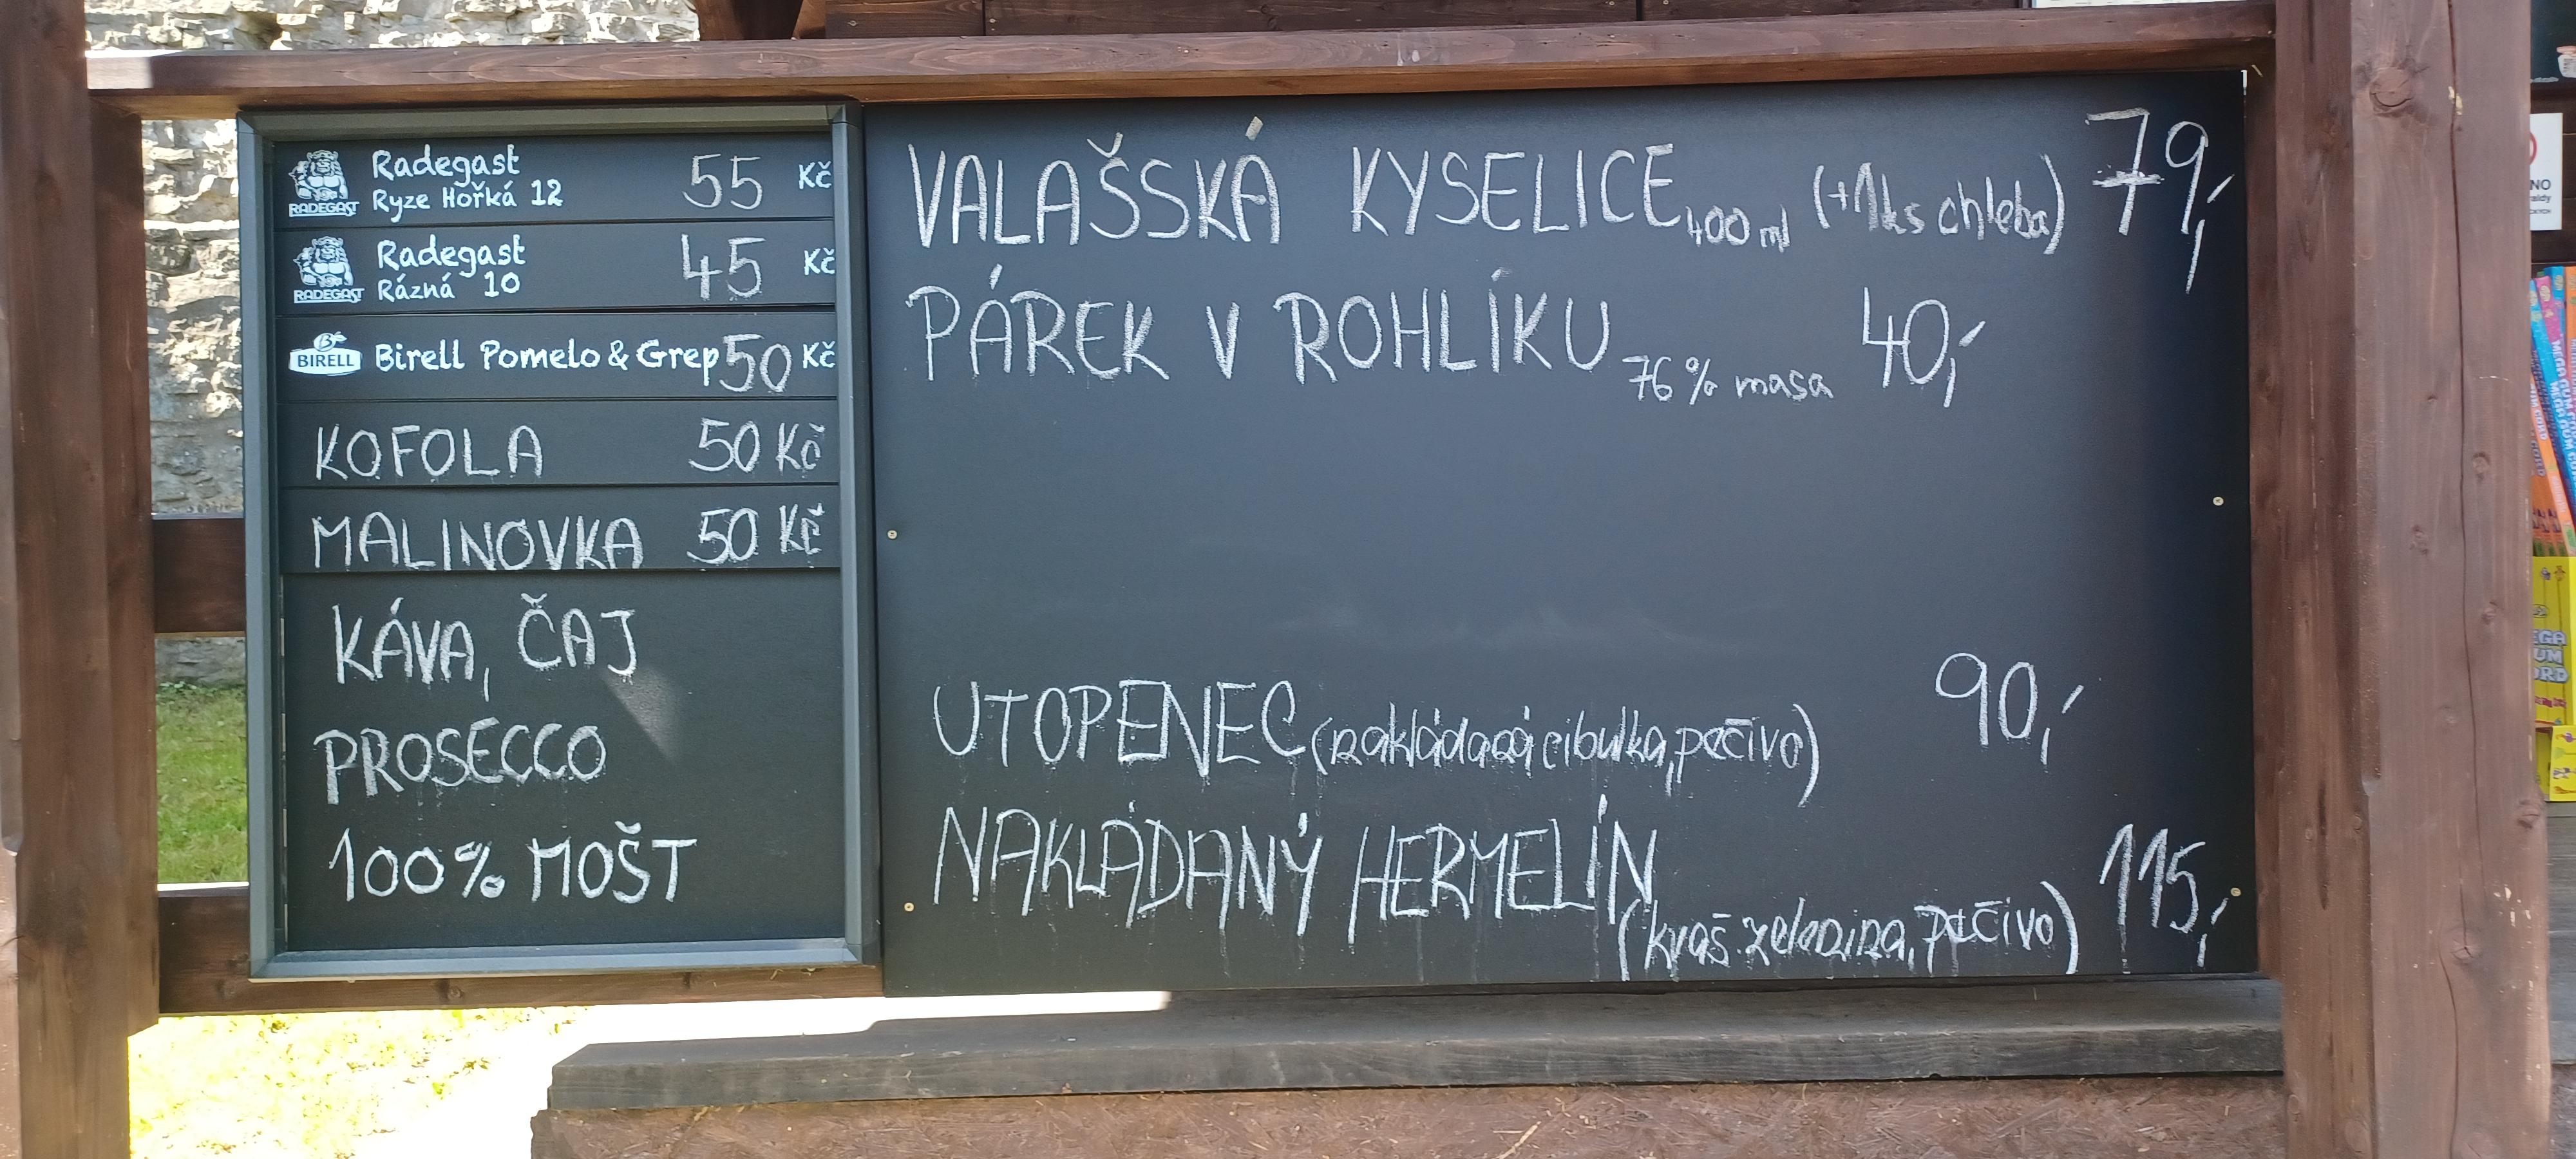 RADEGAST Radegast
Ryze Hořká 12 55 Kč
RADEGAST Radegast
Rázná 10 45 Kč
BIRELL Birell Pomelo & Grep 50 Kč
KOFOLA 50 Kč
MALINOVKA 50 Kč
KÁVA, ČAJ
PROSECCO
100% MOŠT
VALAŠSKÁ KYSELICE 400 ml (+1ks chleba) 79,-
PÁREK V ROHLÍKU 76% masa 40,-
UTOPENEC (nakládaná cibulka, pečivo) 90,-
NAKLÁDANÝ HERMELÍN
(kvaš. zelenina, pečivo) 115,-